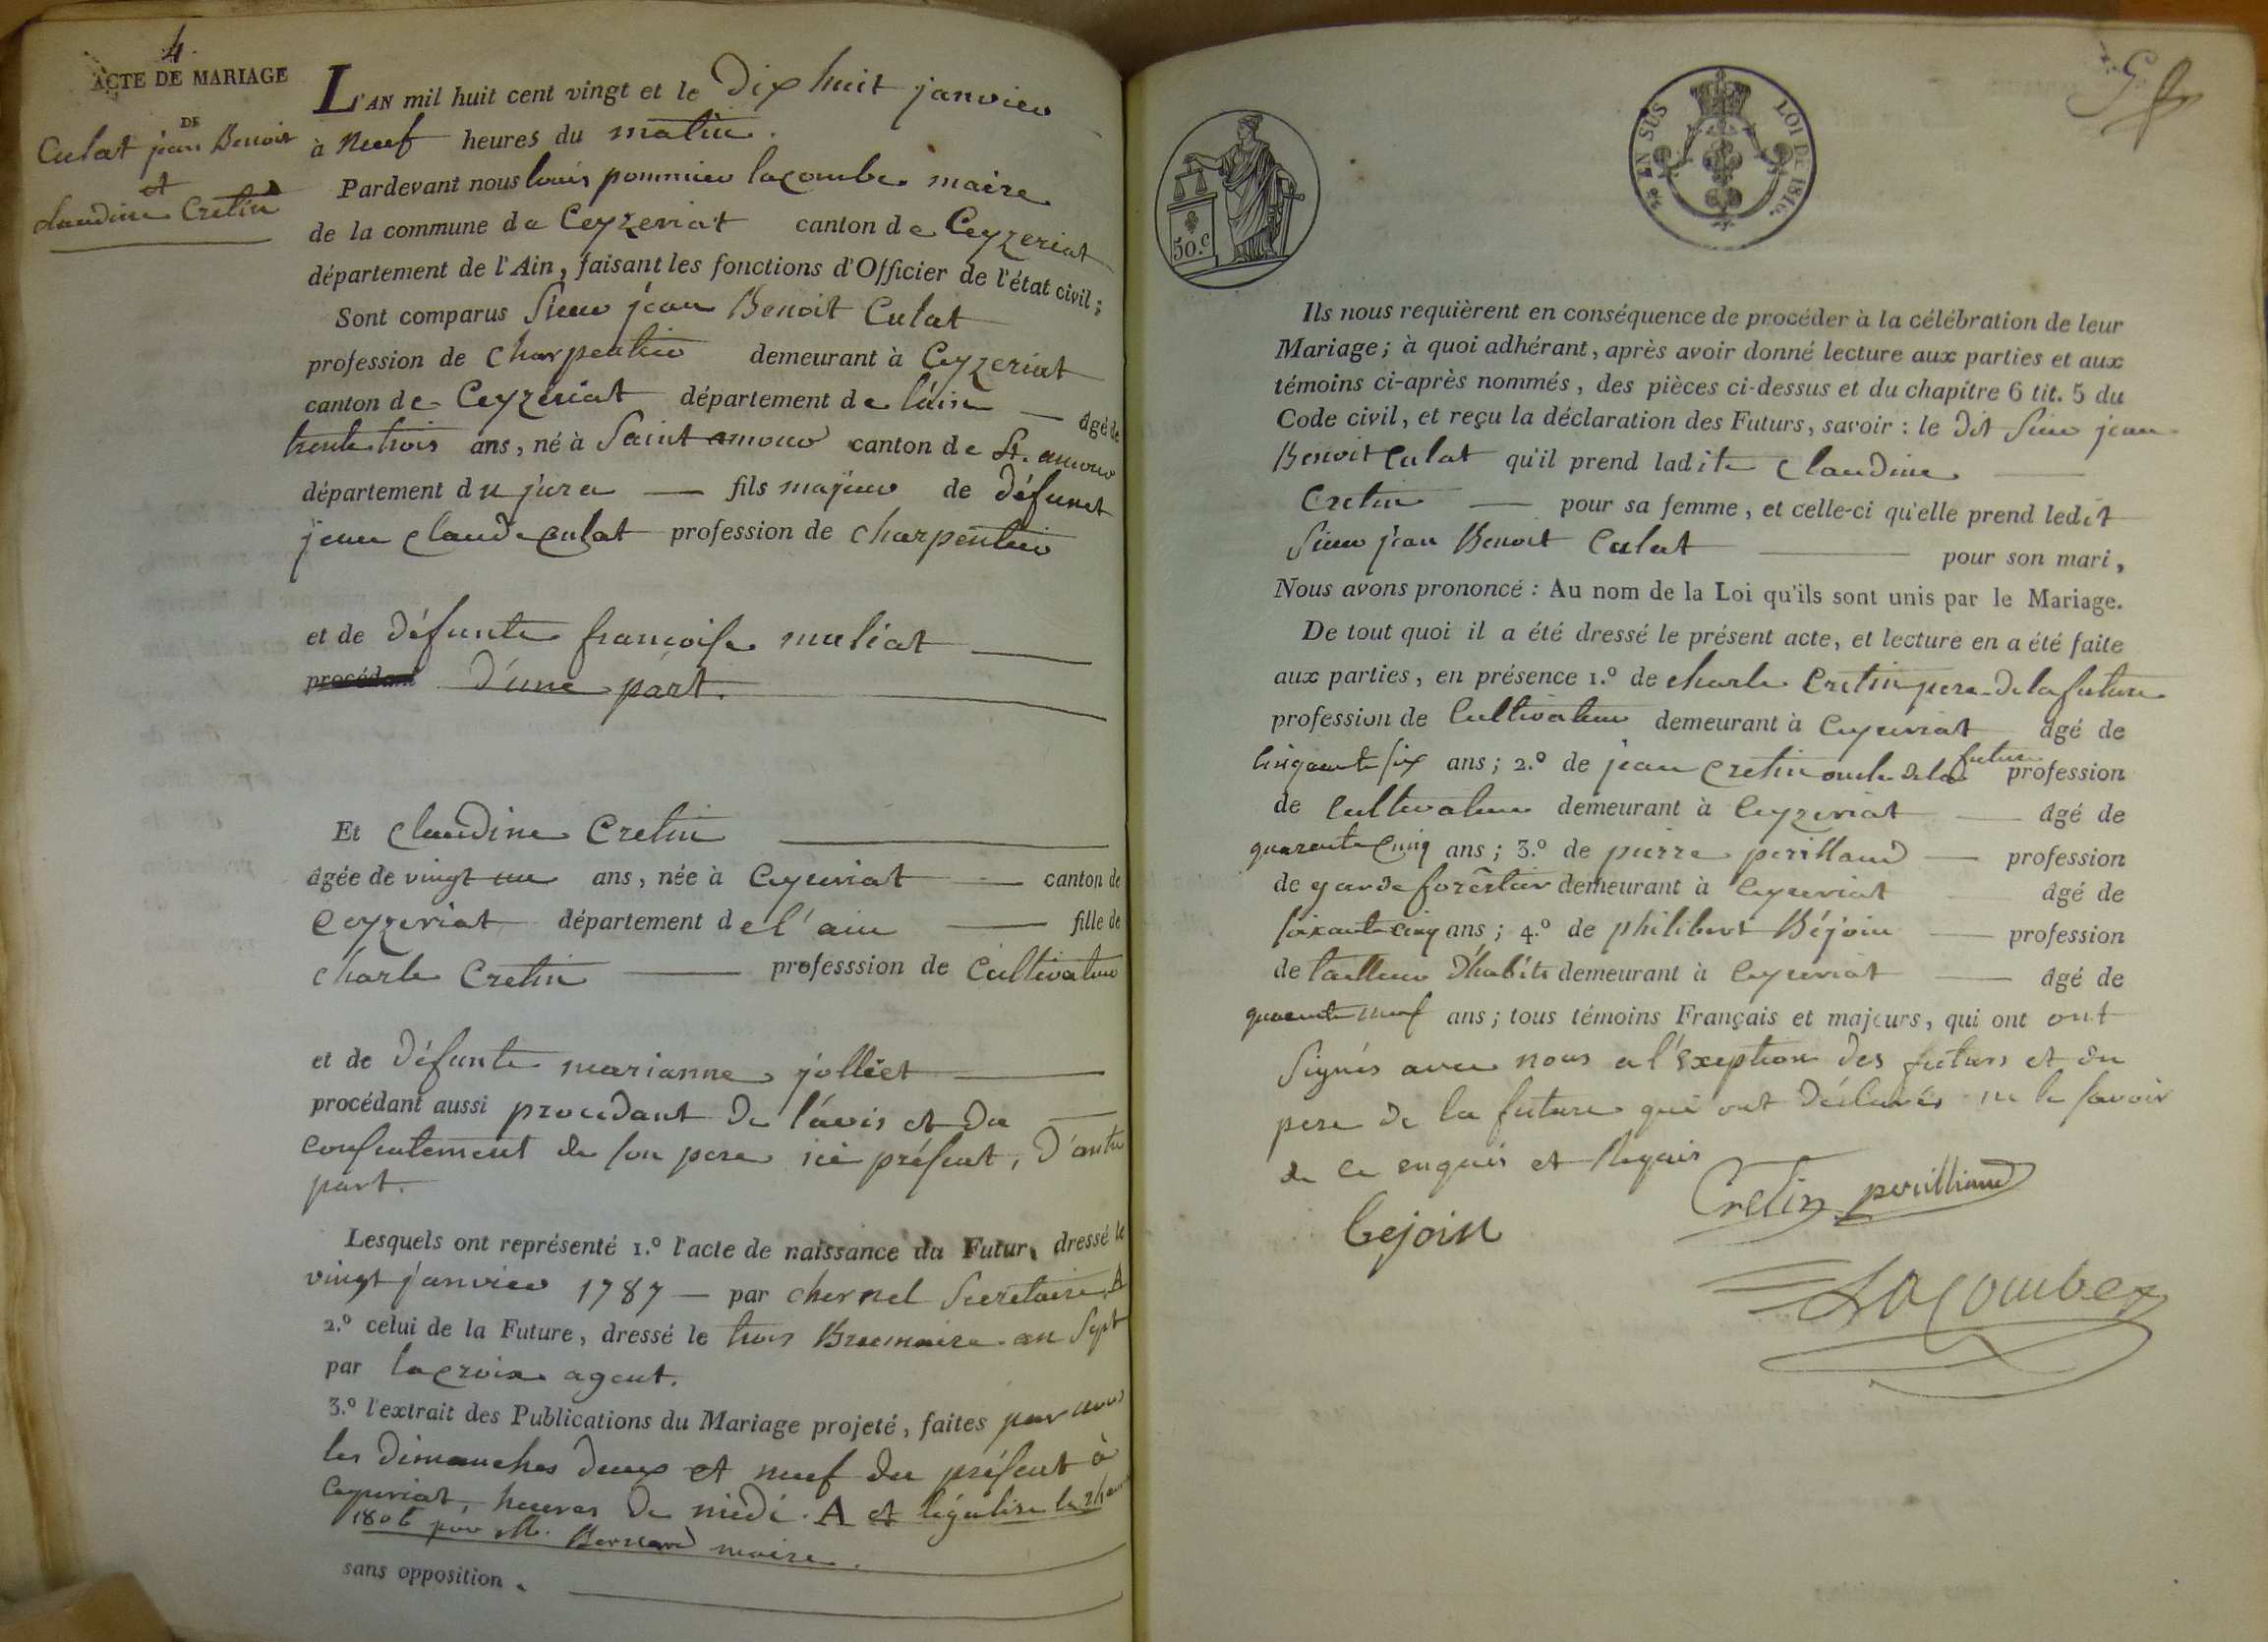 4.
ACTE DE MARIAGE
DE
Culat jean Benoit
et
claudine Cretin
L'AN mil huit cent vingt et le Dix huit janvier
à Neuf heures du matin.
Pardevant nous louis pommier lacombe maire
de la commune de Ceyzeriat canton de Ceyzeriat
département de l'Ain, faisant les fonctions d'Officier de l'état civil;
Sont comparus Sieur jean Benoit Culat
profession de Charpentier demeurant à Ceyzeriat
canton de Ceyzeriat département de l'ain âgé de
trente trois ans, né à Saint amour canton de St. amour
département du jura fils majeur de défunt
jean claude Culat profession de charpentier
et de défunte françoise muliat
procédant D'une part.
Et claudine Cretin
âgée de vingt un ans, née à Ceyzeriat canton de
Ceyzeriat département de l'ain fille de
charle Cretin professsion de Cultivateur
et de défunte marianne jolliet
procédant aussi procedant de l'avis et du
consentement de son pere ici présent, D'autre
part.
Lesquels ont représenté 1.º l'acte de naissance du Futur, dressé le
vingt janvier 1787 — par chernel Secretaire A
2.º celui de la Future, dressé le trois Brumaire an Sept
par lacroix agent.
3.º l'extrait des Publications du Mariage projeté, faites par nous
les dimanches deux et neuf du présent à
Ceyzeriat, heures de midi. A et légalisé le
1806 par M. Bernard maire.
sans opposition.
EN SUS LOI DE 1816.
50.c
Ils nous requièrent en conséquence de procéder à la célébration de leur
Mariage; à quoi adhérant, après avoir donné lecture aux parties et aux
témoins ci-après nommés, des pièces ci-dessus et du chapitre 6 tit. 5 du
Code civil, et reçu la déclaration des Futurs, savoir: le dit Sieur jean
Benoit Culat qu'il prend ladite Claudine
Cretin pour sa femme, et celle-ci qu'elle prend ledit
Sieur jean Benoit Culat pour son mari,
Nous avons prononcé: Au nom de la Loi qu'ils sont unis par le Mariage.
De tout quoi il a été dressé le présent acte, et lecture en a été faite
aux parties, en présence 1.º de charle Cretin pere de la future
profession de Cultivateur demeurant à Ceyzeriat âgé de
cinquante six ans; 2.º de jean Cretin oncle de la future profession
de Cultivateur demeurant à Ceyzeriat âgé de
quarante Cinq ans; 3.º de pierre perilland profession
de garde forêstier demeurant à Ceyzeriat âgé de
soixante cinq ans; 4.º de philibert Béjoin profession
de tailleur D'habits demeurant à Ceyzeriat âgé de
quarante neuf ans; tous témoins Français et majeurs, qui ont ont
signés avec nous a l'Exeption des futurs et du
pere de la future qui ont déclarés ne le savoir
de ce enquis et Requis
Cretin perilliand
bejoin
Lacombe